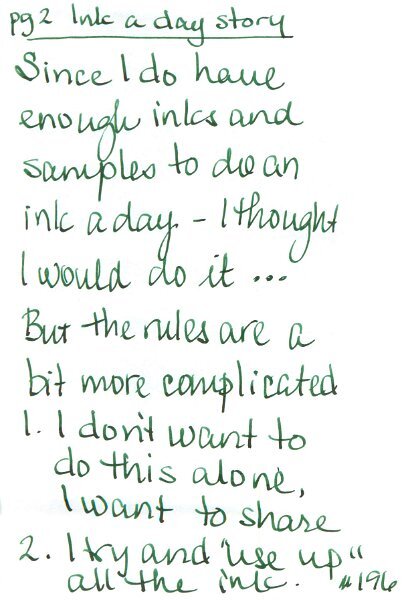 pg2 Ink a day story
Since I do have
enough inks and
samples to do an
ink a day. - I thought
I would do it ...
But the rules are a
bit more complicated
1. I don't want to
do this alone,
I want to share
2. I try and "use up"
all the ink. #196